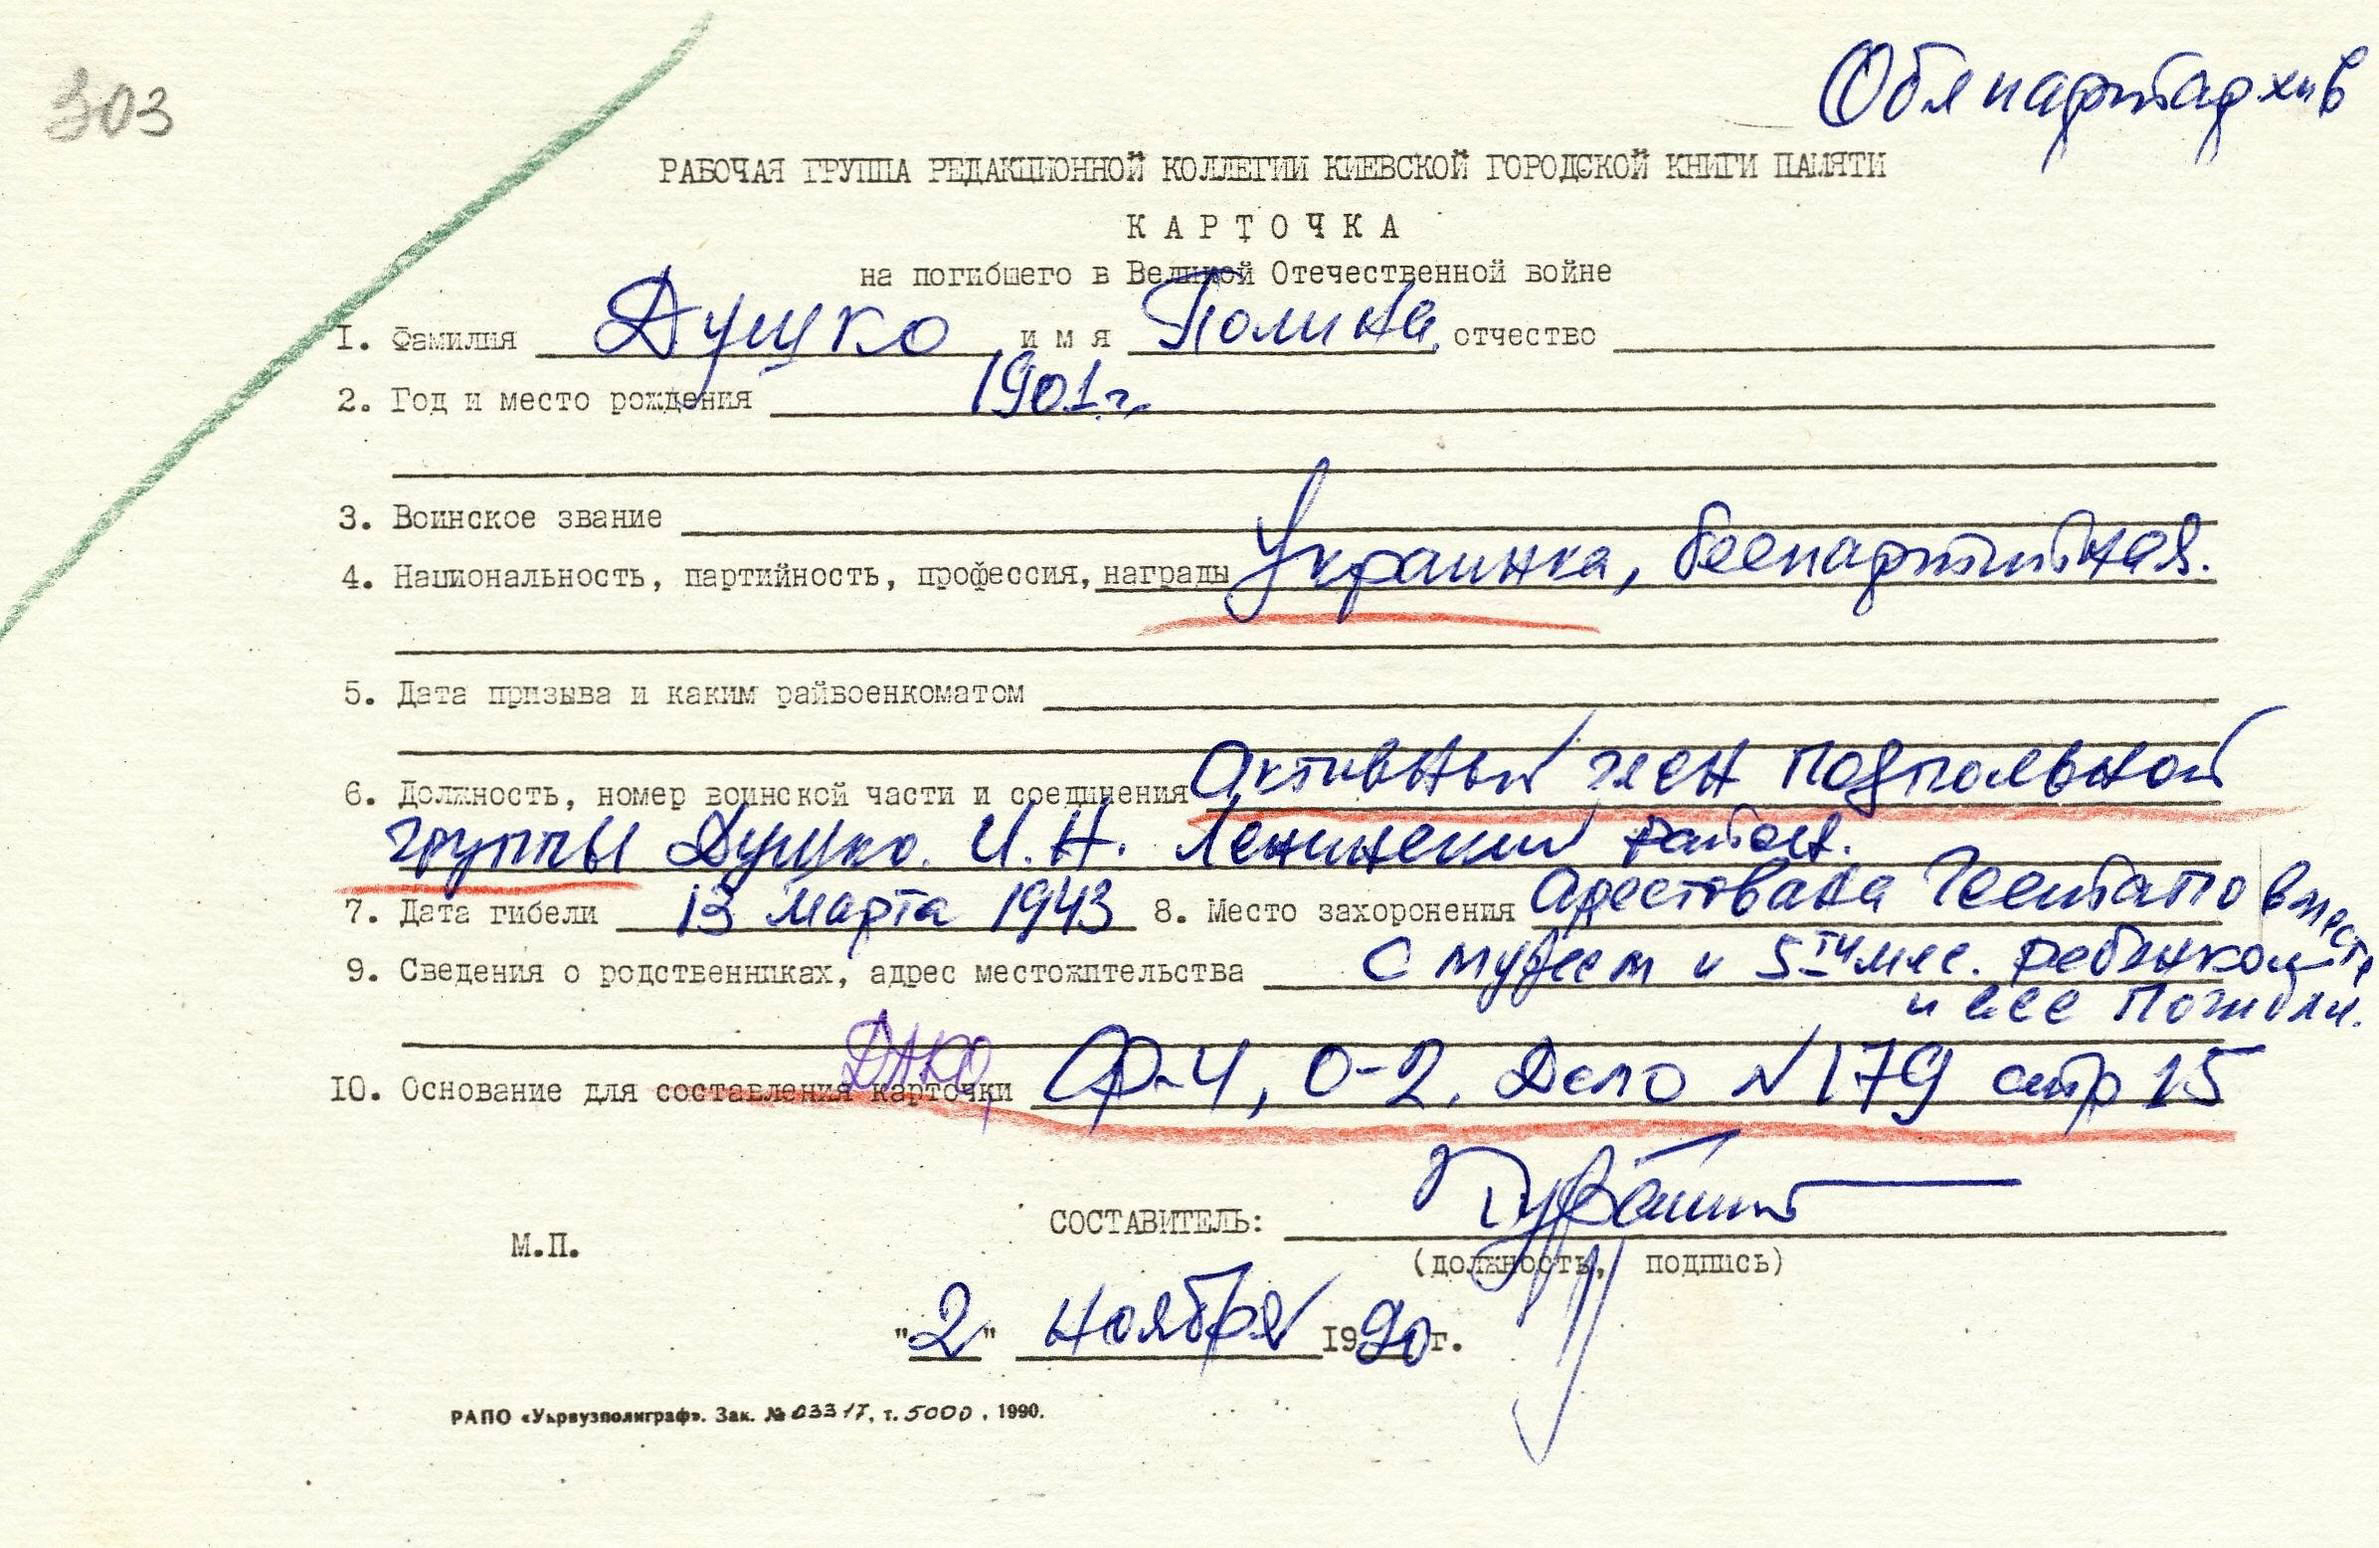 303
Облпартархив
РАБОЧАЯ ГРУППА РЕДАКЦИОННОЙ КОЛЛЕГИИ КИЕВСКОЙ ГОРОДСКОЙ КНИГИ ПАМЯТИ
КАРТОЧКА
на погибшего в Великой Отечественной войне
I. Фамилия Душко имя Полина, отчество
2. Год и место рождения 1901 г.
3. Воинское звание
4. Национальность, партийность, профессия, награды Украинка, беспартийная.
5. Дата призыва и каким райвоенкоматом
6. Должность, номер воинской части и соединения Активный член подпольной
группы Душко. И.Н. Ленинский район.
7. Дата гибели 13 марта 1943 8. Место захоронения Арестована Гестапо вместе
9. Сведения о родственниках, адрес местожительства с мужем и 5ти мес. ребенком
и все погибли.
ДАКО,
IO. Основание для составления карточки Ф-4, О-2. Дело №179 стр 15
СОСТАВИТЕЛЬ:
М.П.
(должность, подпись)
"2" ноября 1990г.
РАПО «Укрвузполиграф». Зак. № 0331Т, т. 5000, 1990.